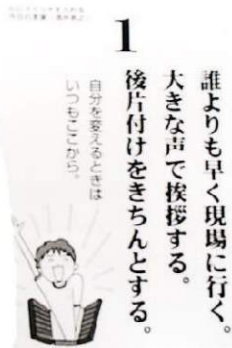 1
誰よりも早く現場に行く。
大きな声で挨拶する。
後片付けをきちんとする。
自分を変えるときは
いつもここから。